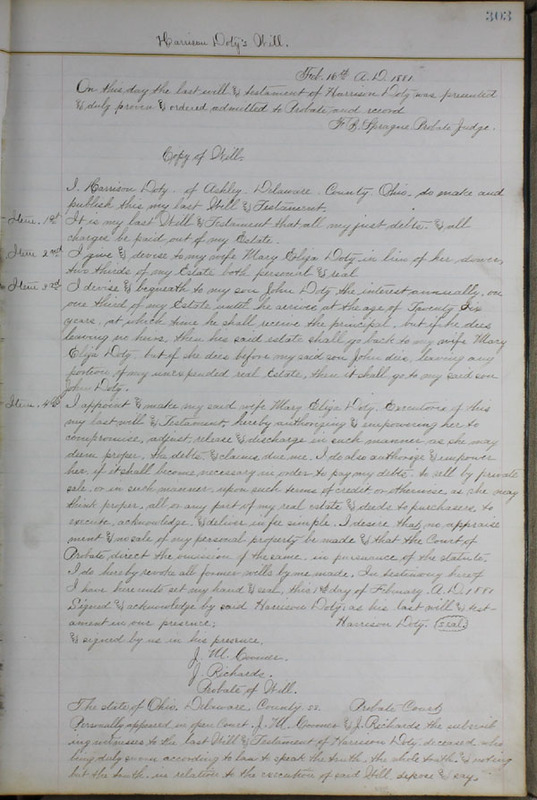 303
Harrison Doty's Will.
Feb. 16th A.D. 1881.
On this day the last will & testament of Harrison Doty was presented
& duly proven & ordered admitted to Probate and record
F. B. Sprague Probate Judge.
Copy of Will.
I. Harrison Doty. of Ashley. Delaware. County. Ohio. do make and
publish this my last Will & Testament.
Item. 1st It is my last Will & Testament that all my just debts. & all
charges be paid out of my Estate.
Item 2nd I give & devise to my wife Mary Eliza Doty in lieu of her dower,
two thirds of my Estate both personal & real
Item 3rd I devise & bequeath to my son John Doty the interest annually. on
one third of my Estate until he arrives at the age of Twenty Six
years, at which time he shall receive the principal, but if he dies
leaving no heirs, then his said estate shall go back to my wife Mary
Eliza Doty. but if she dies before my said son John dies, leaving any
portion of my unexpended real Estate, then it shall go to my said son
John Doty.
Item. 4th I appoint & make my said wife Mary Eliza Doty. Executrix of this
my last will & Testament, hereby authorizing & empowering her to
compromise, adjust, release & discharge in such manner as she may
deem proper, the debts & claims due me. I do also authorize & empower
her, if it shall become necessary in order to pay my debts. to sell by private
sale. or in such manner, upon such terms of credit or otherwise as she may
think proper, all or any part of my real estate & deeds to purchasers, to
execute, acknowledge & deliver in fee simple. I desire that no appraise
ment & no sale of my personal property be made & that the Court of
Probate, direct the omission of the same. in pursuance of the statute.
I do hereby revoke all former wills by me made. In testimony hereof
I have hereunto set my hand & seal, this 1st day of February. A.D. 1881
Signed & acknowledge by said Harrison Doty. as his last will & test-
ament in our presence; Harrison Doty. (seal)
& signed by us in his presence.
J. M. Coomer.
J. Richards.
Probate of Will.
The state of Ohio. Delaware. County. ss. Probate Court
Personally appeared in open Court. J. M. Coomer & J. Richards. the subscrib
ing witnesses to the last Will & Testament of Harrison Doty. deceased. who
being duly sworn according to law to speak the truth. the whole truth. & nothing
but the truth. in relation to the execution of said Will depose & say.